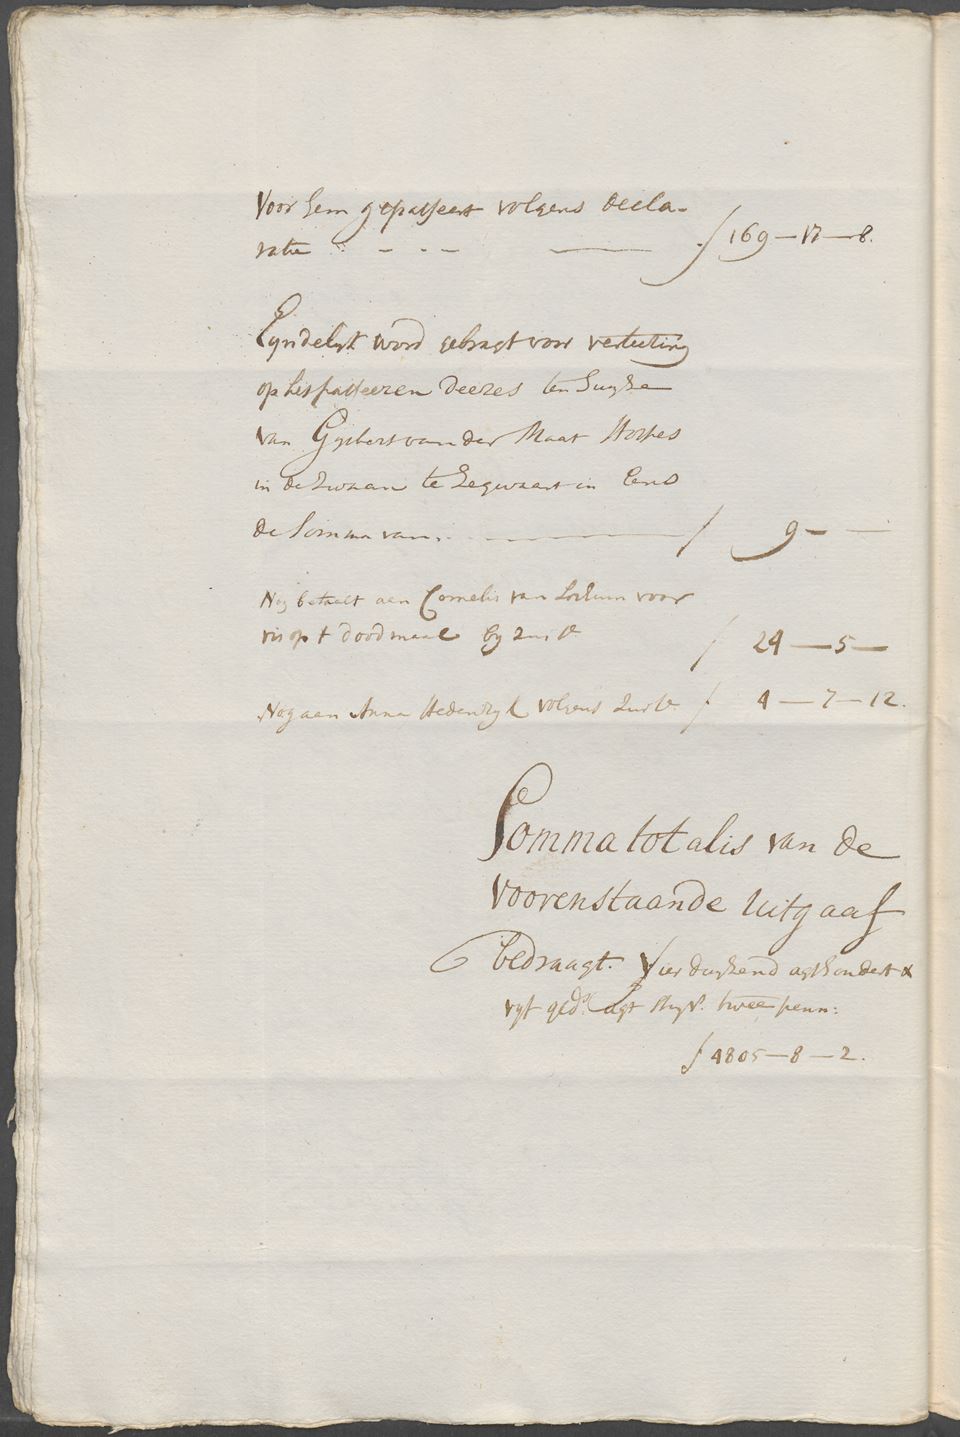 Voor hem gepasseert volgens decla-
ratie - - - - ƒ 169 - 17 - 8.
Eyndelyk word gebragt voor verteering
op het passeeren deezes ten huyse
van Gysbert van der Maat Hospes
in de Zwaan te Zegwaart in Eens
de Somma van. ƒ 9 - -
Nog betaelt aan Cornelis van voor
vis op t doodmaal by quitte ƒ 24 - 5 -
Nog aan Anna volgens quitte ƒ 4 - 7 - 12.
Somma totalis van de
voorenstaande Uitgaaf
bedraagt. Vier duysend agthondert &
vyf glds. agt stuyv. twee penn:
ƒ 4805 - 8 - 2.